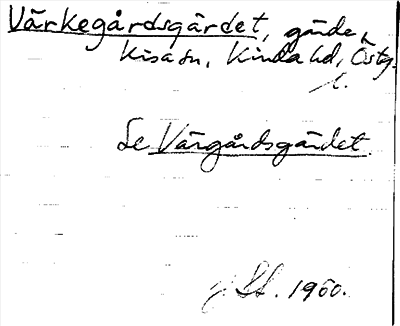 Värkegårdsgärdet, gärde,
Kisa sn, Kinda hd, Östg.
l.
Se Värgårdsgärdet.
1960.